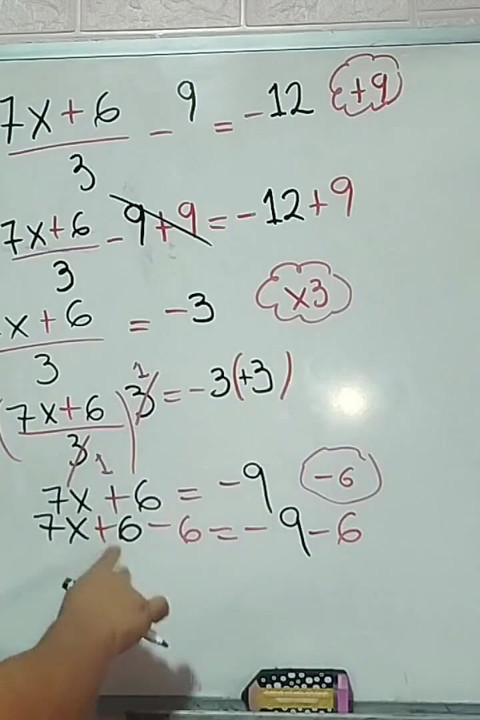 7x+6/3 - 9 = -12 +9
7x+6/3 - 9+9 = -12+9
x+6/3 = -3 x3
(7x+6/3)3 1 = -3(+3)
1
7x+6 = -9 -6
7x+6-6 = -9-6